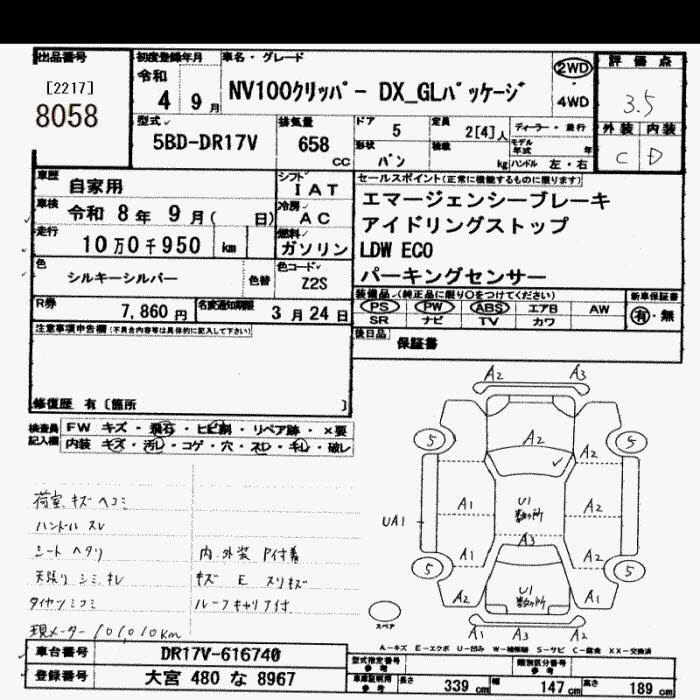 出品番号
[2217]
8058
初度登録年月
令和
4 9月
車名・グレード
NV100クリッパー DX_GLパッケージ
2WD
4WD
評価点
3.5
外装 内装
C D
型式
5BD-DR17V
排気量
658
cc
ドア
5
形状
バン
定員
2[4]人
積載
kg
ディーラー・並行
モデル年式
年
ハンドル 左・右
車歴
自家用
車検
令和 8年 9月( 日)
走行
10万0千950 km
色
シルキーシルバー
色替
シフト
IAT
冷房
AC
燃料
ガソリン
色コード
Z2S
R券
7,860 円
名変通知期限
3月24日
セールスポイント(正常に機能するものに限ります)
エマージェンシーブレーキ
アイドリングストップ
LDW ECO
パーキングセンサー
装備品(純正品に限り○をつけてください)
PS PW ABS エアB AW
SR ナビ TV カワ
新車保証書
有・無
後日品
保証書
注意事項申告欄(不具合内容等は具体的に記入して下さい)
修復歴 有〔箇所 〕
検査員記入欄
FW キズ・飛石・ヒビ割・リペア跡・×要
内装 キズ・汚レ・コゲ・穴・スレ・キレ・破レ
荷室 キズ ヘコミ
ハンドル スレ
シート ヘタリ
天張り シミ キレ
タイヤツミコミ
現メーター 101010km
内.外装 P付着
キズ E スリキズ
ルーフキャリア付
A2 A3
5 5
A2
A2
A1 U1 数ヶ所 A2
UA1
A3
A1 A2
5 5
A2 U1 数ヶ所 A1
A1 A3 A2
スペア
A-キズ E-エクボ U-凹み W-補修跡 S-サビ C-腐食 XX-交換済
車台番号
DR17V-616740
登録番号
大宮 480 な 8967
型式指定番号
参考
類別区分番号
参考
車庫証明用
参考
長さ 339 cm
幅 147 cm
高さ 189 cm